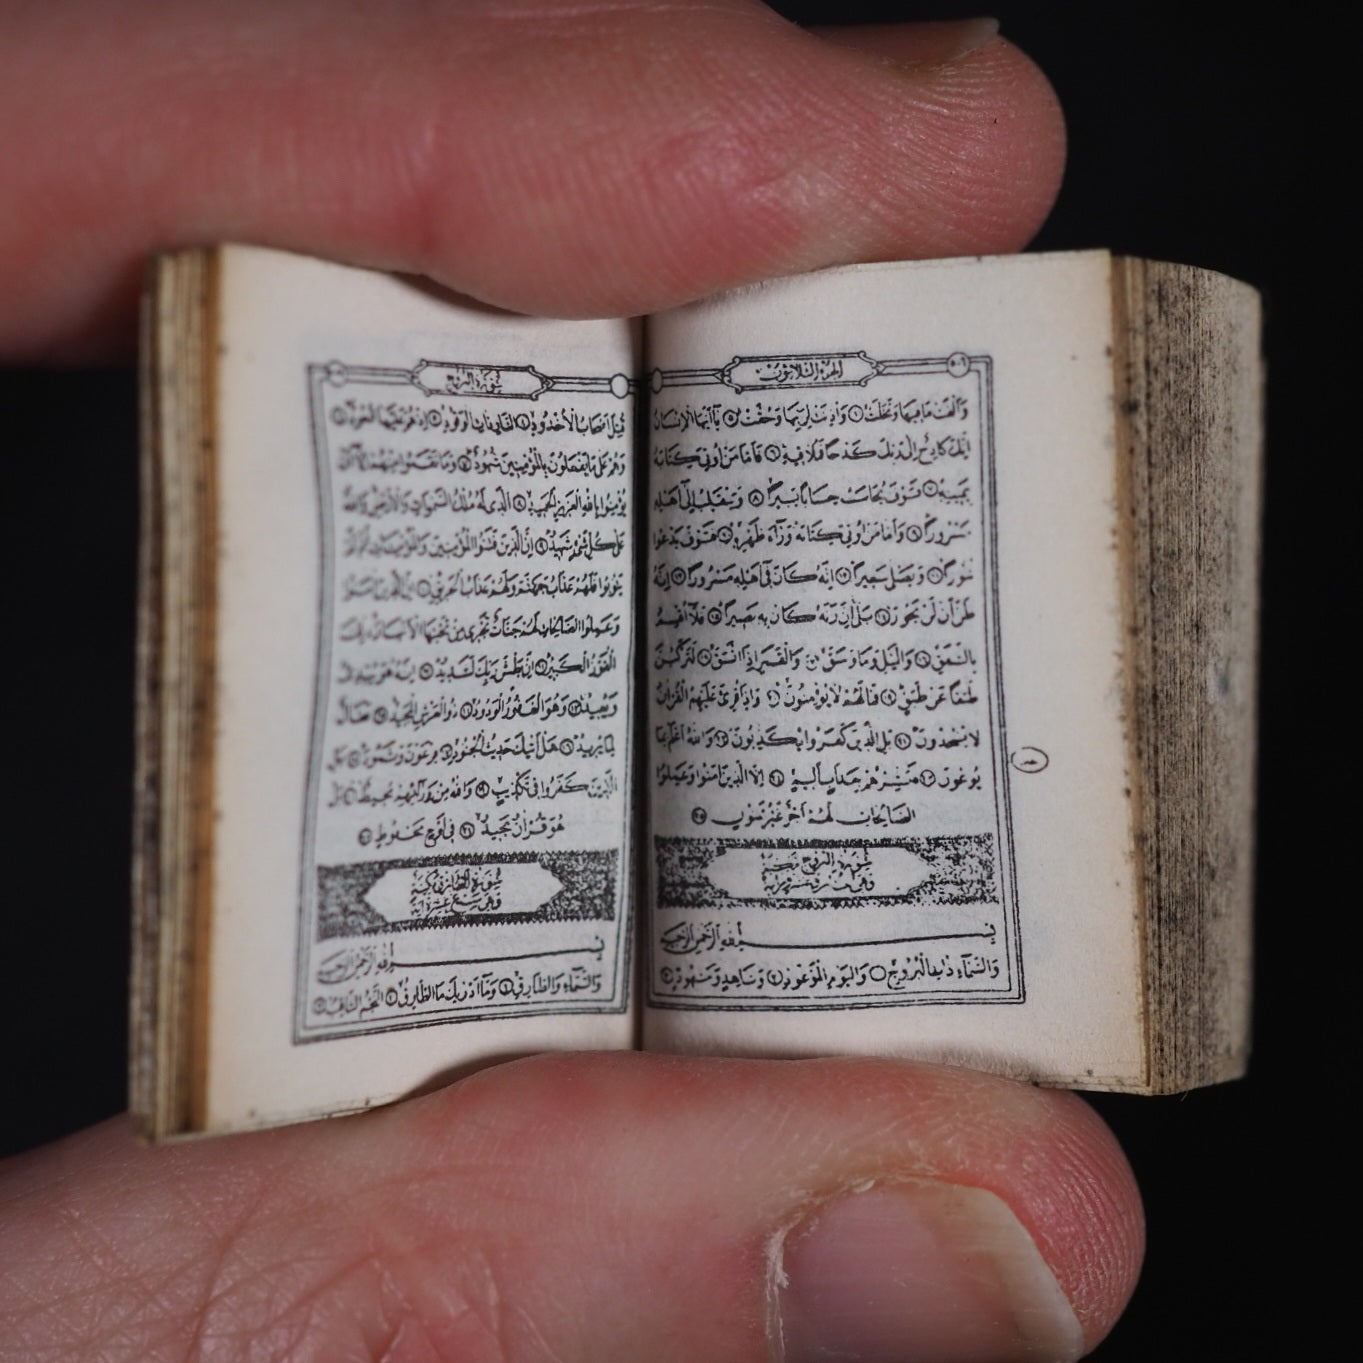 الجزء الثلاثون
وَأَلْقَتْ مَا فِيهَا وَتَخَلَّتْ ۝ وَأَذِنَتْ لِرَبِّهَا وَحُقَّتْ ۝ يَا أَيُّهَا الْإِنْسَانُ
إِنَّكَ كَادِحٌ إِلَى رَبِّكَ كَدْحًا فَمُلَاقِيهِ ۝ فَأَمَّا مَنْ أُوتِيَ كِتَابَهُ
بِيَمِينِهِ ۝ فَسَوْفَ يُحَاسَبُ حِسَابًا يَسِيرًا ۝ وَيَنْقَلِبُ إِلَى أَهْلِهِ
مَسْرُورًا ۝ وَأَمَّا مَنْ أُوتِيَ كِتَابَهُ وَرَاءَ ظَهْرِهِ ۝ فَسَوْفَ يَدْعُوا
ثُبُورًا ۝ وَيَصْلَى سَعِيرًا ۝ إِنَّهُ كَانَ فِي أَهْلِهِ مَسْرُورًا ۝ إِنَّهُ
ظَنَّ أَنْ لَنْ يَحُورَ ۝ بَلَى إِنَّ رَبَّهُ كَانَ بِهِ بَصِيرًا ۝ فَلَا أُقْسِمُ
بِالشَّفَقِ ۝ وَاللَّيْلِ وَمَا وَسَقَ ۝ وَالْقَمَرِ إِذَا اتَّسَقَ ۝ لَتَرْكَبُنَّ
طَبَقًا عَنْ طَبَقٍ ۝ فَمَا لَهُمْ لَا يُؤْمِنُونَ ۝ وَإِذَا قُرِئَ عَلَيْهِمُ الْقُرْآنُ
لَا يَسْجُدُونَ ۝ بَلِ الَّذِينَ كَفَرُوا يُكَذِّبُونَ ۝ وَاللَّهُ أَعْلَمُ بِمَا
يُوعُونَ ۝ فَبَشِّرْهُمْ بِعَذَابٍ أَلِيمٍ ۝ إِلَّا الَّذِينَ آمَنُوا وَعَمِلُوا
الصَّالِحَاتِ لَهُمْ أَجْرٌ غَيْرُ مَمْنُونٍ ۝
سورة البروج مكية
بسم الله الرحمن الرحيم
وَالسَّمَاءِ ذَاتِ الْبُرُوجِ ۝ وَالْيَوْمِ الْمَوْعُودِ ۝ وَشَاهِدٍ وَمَشْهُودٍ ۝
سورة البروج
قُتِلَ أَصْحَابُ الْأُخْدُودِ ۝ النَّارِ ذَاتِ الْوَقُودِ ۝ إِذْ هُمْ عَلَيْهَا قُعُودٌ ۝
وَهُمْ عَلَى مَا يَفْعَلُونَ بِالْمُؤْمِنِينَ شُهُودٌ ۝ وَمَا نَقَمُوا مِنْهُمْ إِلَّا أَنْ
يُؤْمِنُوا بِاللَّهِ الْعَزِيزِ الْحَمِيدِ ۝ الَّذِي لَهُ مُلْكُ السَّمَوَاتِ وَالْأَرْضِ وَاللَّهُ
عَلَى كُلِّ شَيْءٍ شَهِيدٌ ۝ إِنَّ الَّذِينَ فَتَنُوا الْمُؤْمِنِينَ وَالْمُؤْمِنَاتِ ثُمَّ لَمْ
يَتُوبُوا فَلَهُمْ عَذَابُ جَهَنَّمَ وَلَهُمْ عَذَابُ الْحَرِيقِ ۝ إِنَّ الَّذِينَ آمَنُوا
وَعَمِلُوا الصَّالِحَاتِ لَهُمْ جَنَّاتٌ تَجْرِي مِنْ تَحْتِهَا الْأَنْهَارُ ذَلِكَ
الْفَوْزُ الْكَبِيرُ ۝ إِنَّ بَطْشَ رَبِّكَ لَشَدِيدٌ ۝ إِنَّهُ هُوَ يُبْدِئُ
وَيُعِيدُ ۝ وَهُوَ الْغَفُورُ الْوَدُودُ ۝ ذُو الْعَرْشِ الْمَجِيدُ ۝ فَعَّالٌ
لِمَا يُرِيدُ ۝ هَلْ أَتَيكَ حَدِيثُ الْجُنُودِ ۝ فِرْعَوْنَ وَثَمُودَ ۝ بَلِ
الَّذِينَ كَفَرُوا فِي تَكْذِيبٍ ۝ وَاللَّهُ مِنْ وَرَائِهِمْ مُحِيطٌ ۝ بَلْ
هُوَ قُرْآنٌ مَجِيدٌ ۝ فِي لَوْحٍ مَحْفُوظٍ ۝
سورة الطارق مكية
وهي سبع عشرة آية
بسم الله الرحمن الرحيم
وَالسَّمَاءِ وَالطَّارِقِ ۝ وَمَا أَدْرَيكَ مَا الطَّارِقُ ۝ النَّجْمُ الثَّاقِبُ ۝